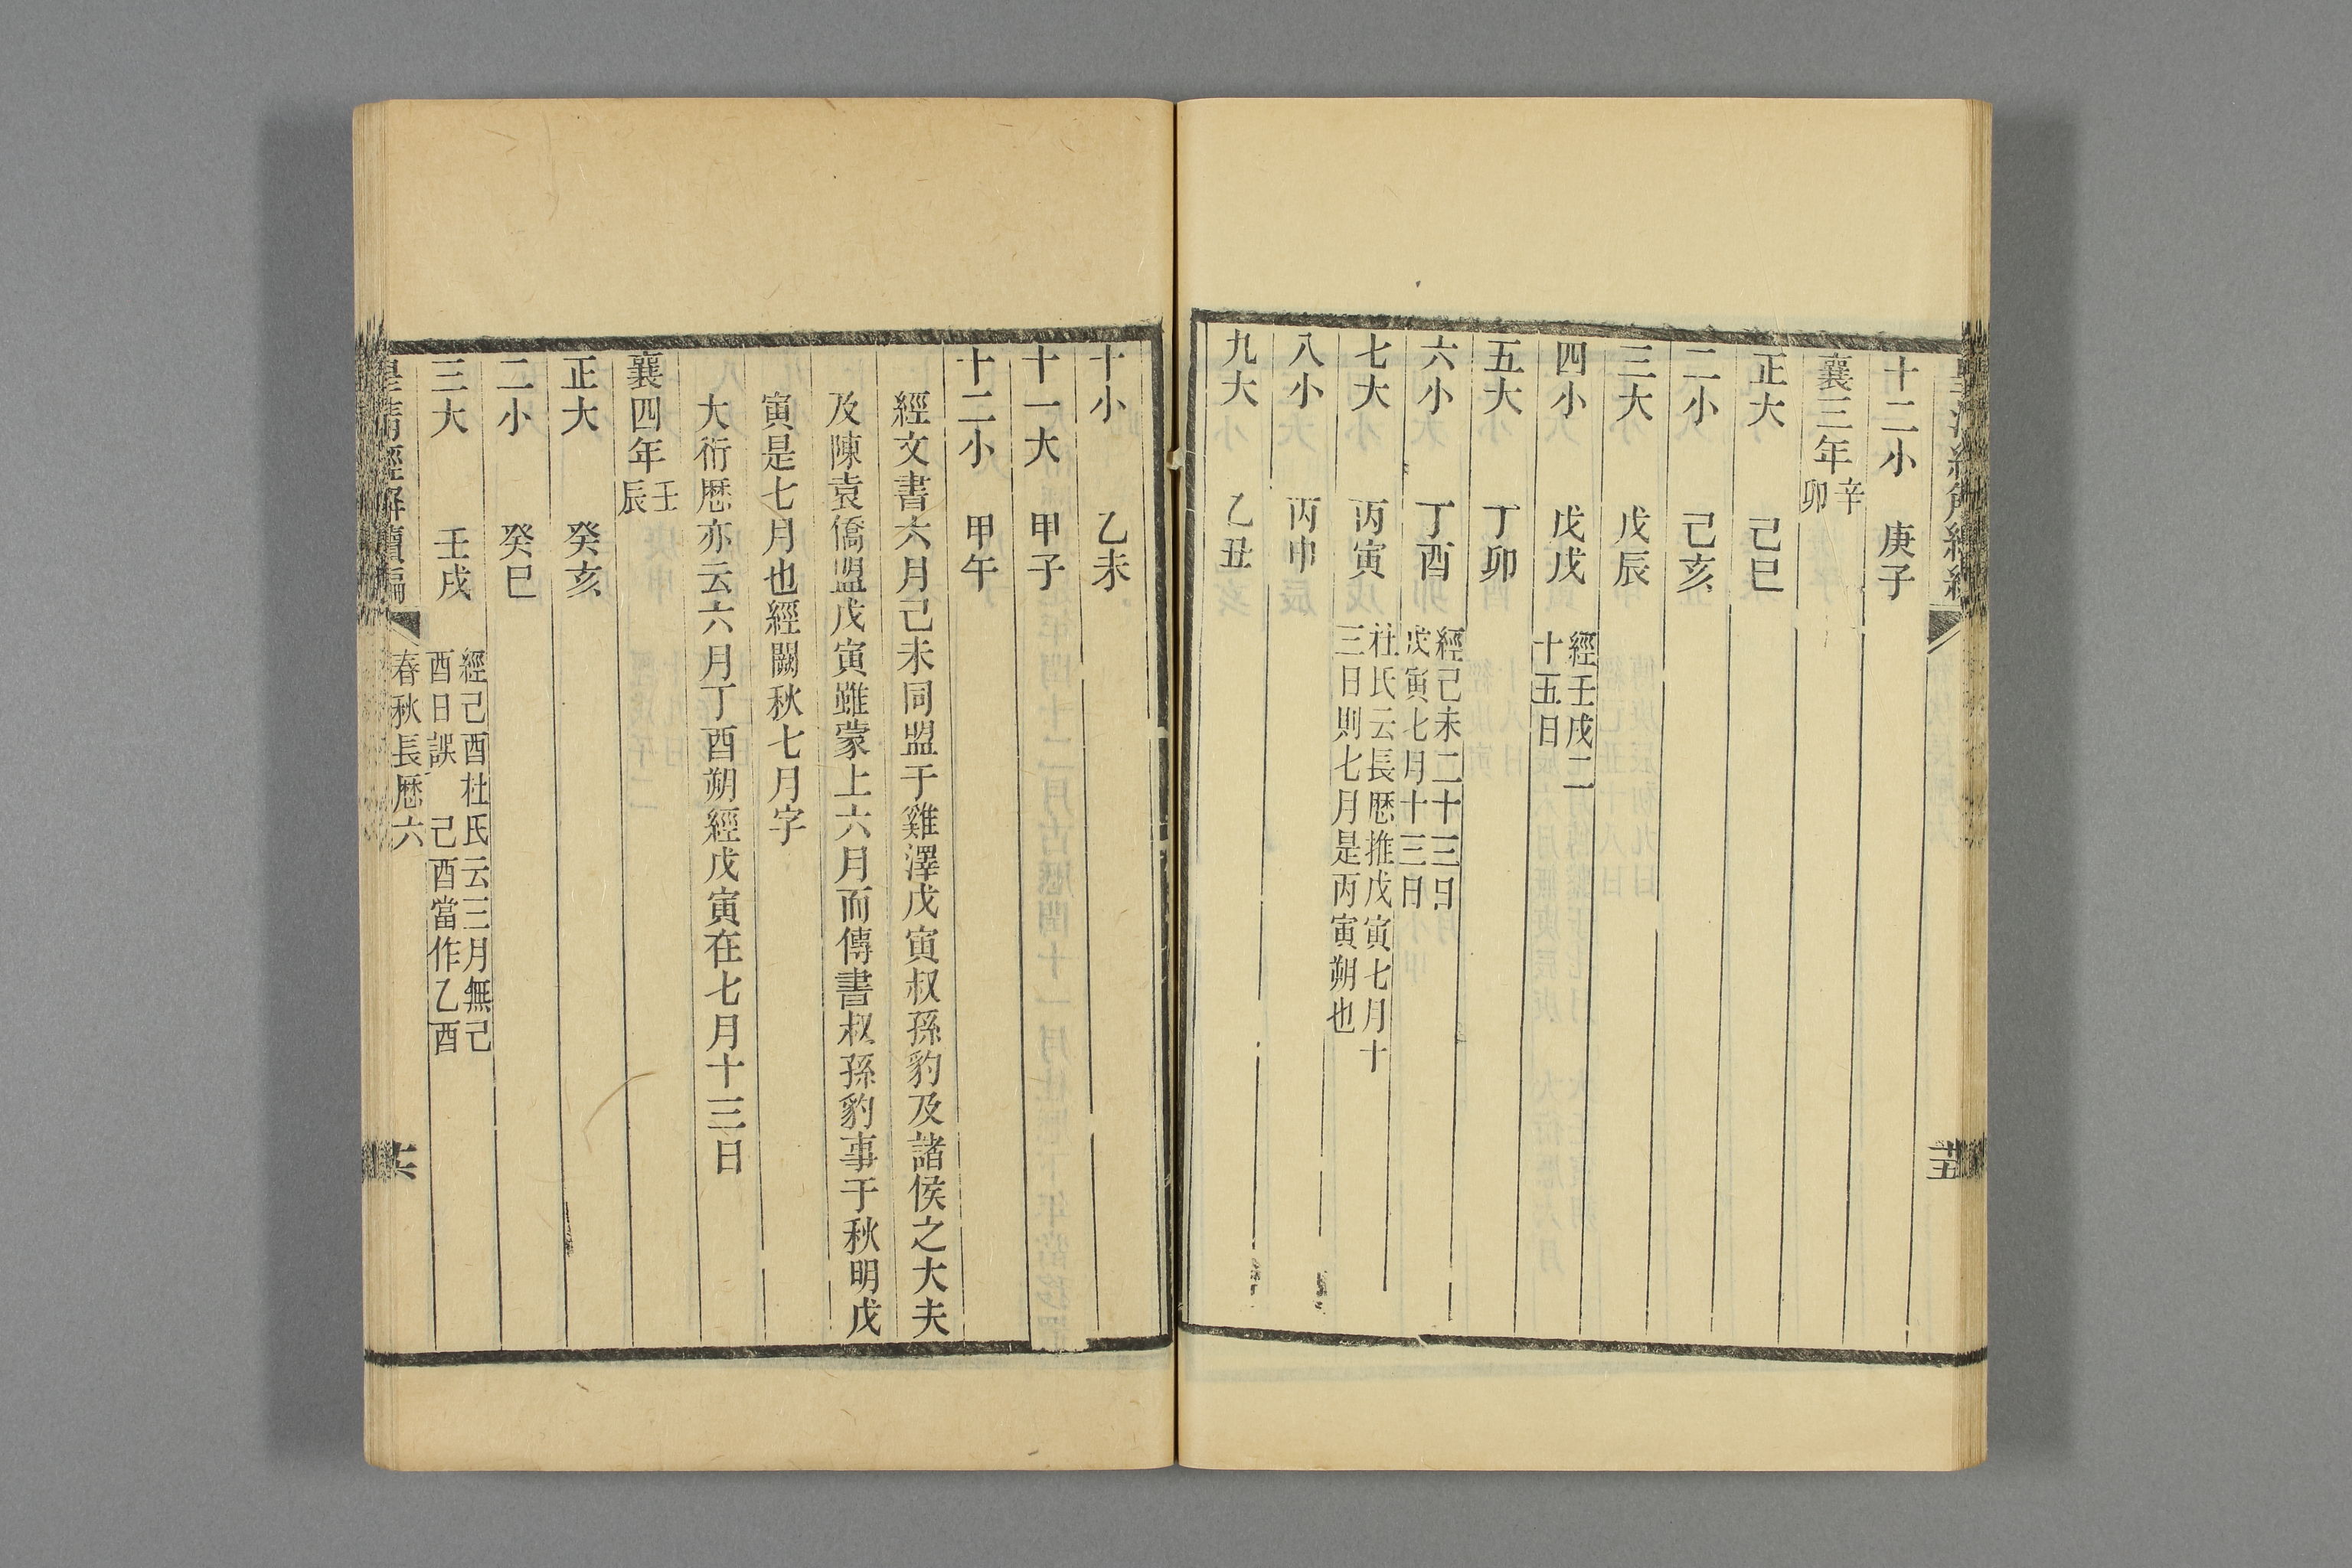 十二小 庚子
襄三年 辛卯
正大 己巳
二小 己亥
三大 戊辰
四小 戊戌 經壬戌二
十五日
五大 丁卯
六小 丁酉 經己未二十三日
戊寅七月十三日
七大 丙寅 杜氏云長厯推戊寅七月十
三日則七月是丙寅朔也
八小 丙申
九大 乙丑
十小 乙未
十一大 甲子
十二小 甲午
經文書六月己未同盟于雞澤戊寅叔孫豹及諸侯之大夫
及陳袁僑盟戊寅雖蒙上六月而傳書叔孫豹事于秋明戊
寅是七月也經闕秋七月字
大衍厯亦云六月丁酉朔經戊寅在七月十三日
襄四年 壬辰
正大 癸亥
二小 癸巳
三大 壬戌 經己酉杜氏云三月無己
酉日誤 己酉當作乙酉
皇清經解續編 春秋長厯六